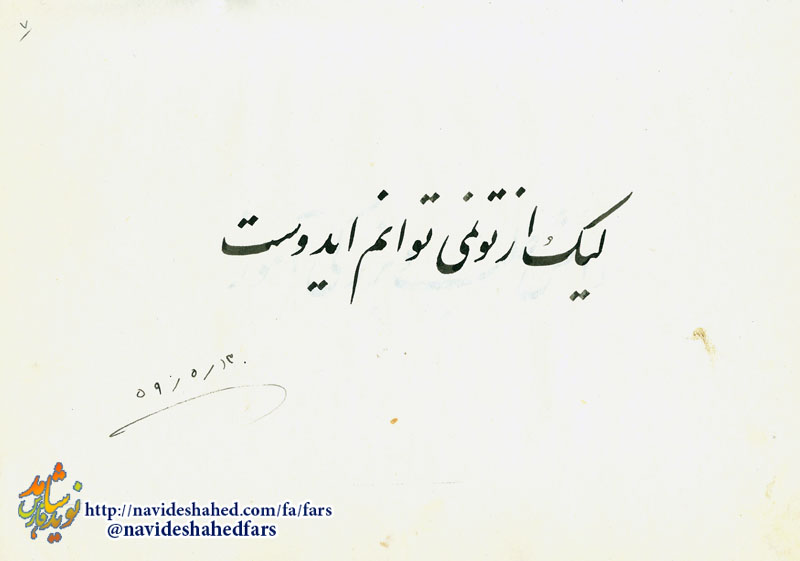 ۷
لیک از تو نمی توانم ایدوست
نوید شاهد
فارس
http://navideshahed.com/fa/fars
@navideshahedfars